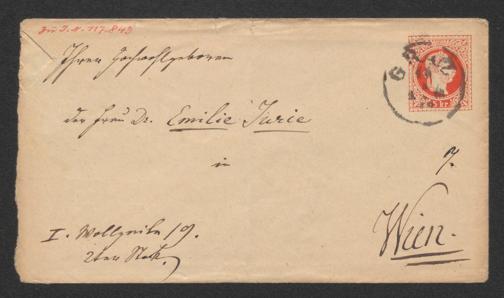 Zu I.N. 117.843
Ihrer Hochwohlgeboren
der Frau Dr. Emilie Turie
in
GRAZ
5 kr
Wien.
I. Wollzeile 19.
2ter Stock.